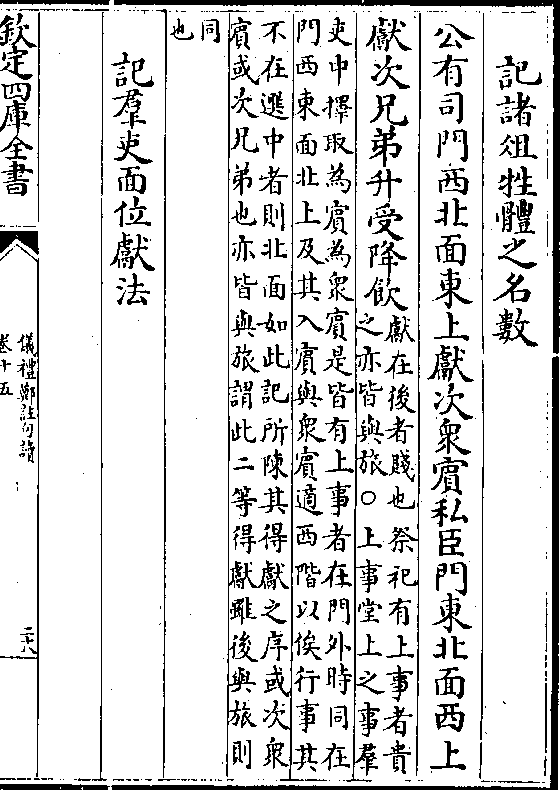 記諸俎牲體之名數
公有司門西北面東上獻次衆賓私臣門東北面西上
獻次兄弟升受降飲獻在後者賤也祭祀有上事者貴
之亦皆與旅○上事堂上之事羣
吏中擇取為賓為衆賓是皆有上事者在門外時同在
門西東面北上及其入賓與衆賓適西階以俟行事其
不在選中者則北面如此記所陳其得獻之序或次衆
賓或次兄弟也亦皆與旅謂此二等得獻雖後與旅則
同
也
記羣吏面位獻法
欽定四庫全書
儀禮鄭註句讀
卷十五
二十八